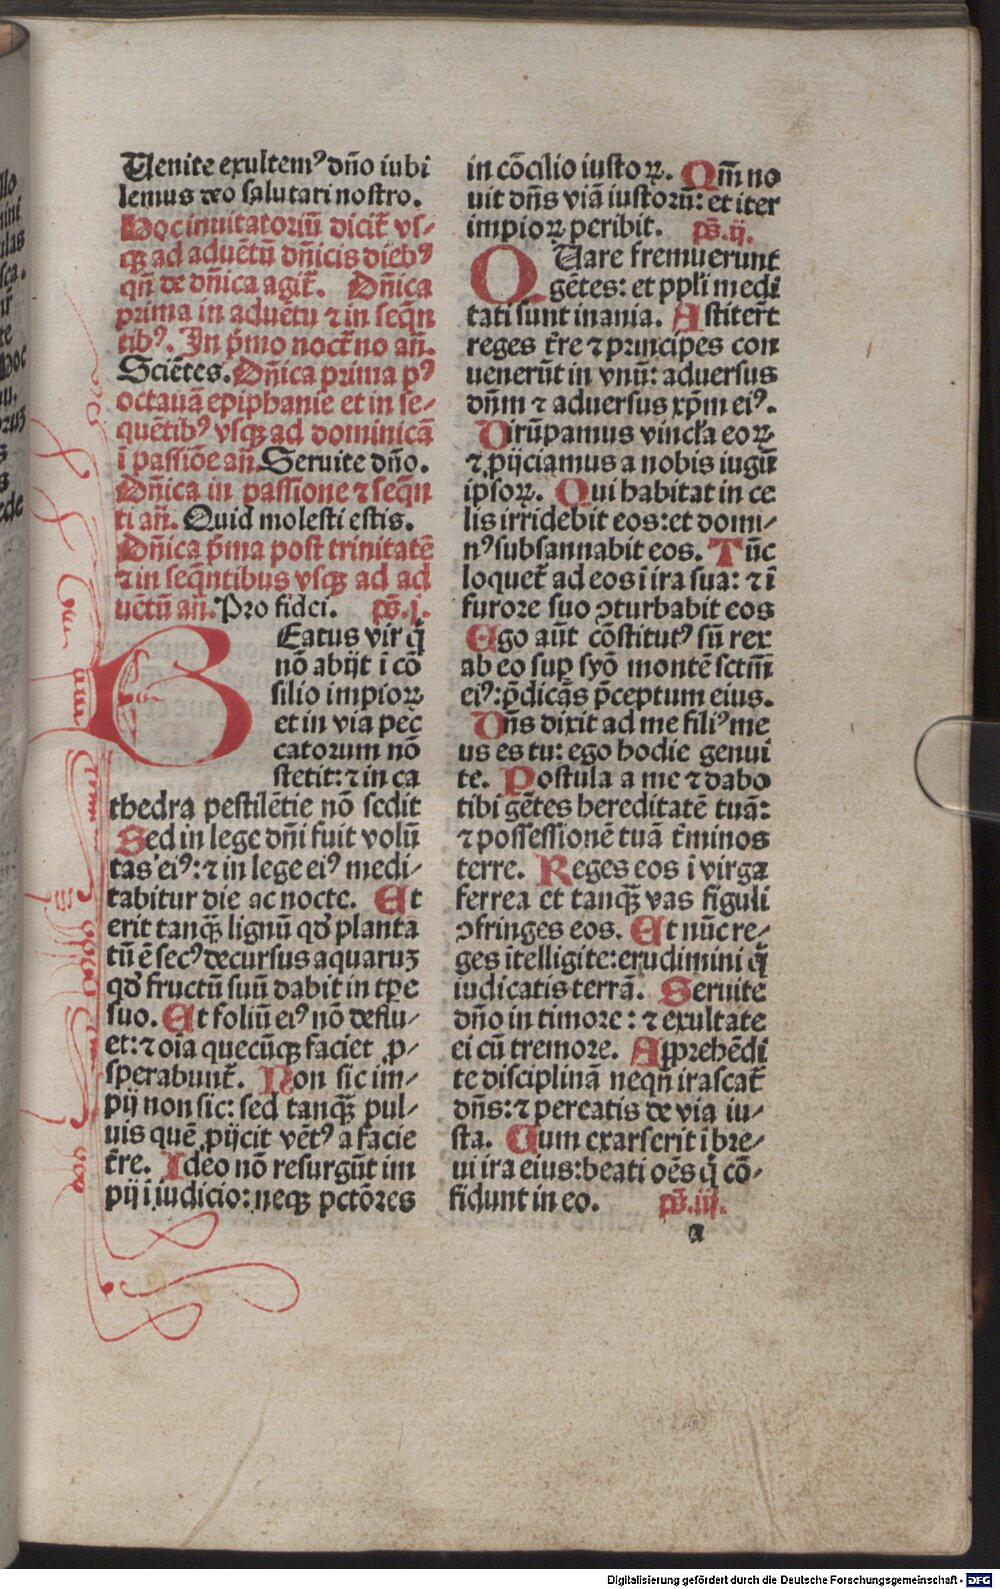 Uenite exultemꝰ dño iubi
lemus deo salutari nostro.
Hoc inuitatoriū dicit᷑ vſ⸗
qꝫ ad aduētū dñicis diebꝰ
qñ de dñica agit᷑. Dñica
prima in aduētu ⁊ in seqñ
tibꝰ. In pͥmo noct᷑no añ.
Sciētes. Dñica prima pꝰ
octauā epiphanie et in se⸗
quētibꝰ vsqꝫ ad dominicā
ī passiōe añ. Seruite dño.
Dñica in passione ⁊ seqñ
ti añ. Quid molesti estis.
Dñica pͥma post trinitatē
⁊ in seqñtibus vsqꝫ ad ad
uētū añ. Pro fidei. ps̄.j.
BEatus vir qͥ
nō abijt ī cō
silio impioꝝ
et in via pec
catorum nō
stetit: ⁊ in ca
thedra pestilētie nō sedit
Sed in lege dñi fuit volū
tas eiꝰ: ⁊ in lege eiꝰ medi⸗
tabitur die ac nocte. Et
erit tanqꝫ lignū qd̓ planta
tū ē secꝰ decursus aquaruꝫ
qd̓ fructū suū dabit in tp̄e
suo. Et foliū eiꝰ nō deflu⸗
et: ⁊ oīa quecūqꝫ faciet ꝓ⸗
sperabunt᷑. Non sic im⸗
pij non sic: sed tanqꝫ pul⸗
uis quē ꝓijcit vētꝰ a facie
t᷑re. Ideo nō resurgūt im
pij ī iudicio: neqꝫ pctōres
in cōcilio iustoꝝ. Qm̄ no
uit dñs viā iustorū: et iter
impioꝝ peribit. ps̄.ij.
QUare fremuerunt
gētes: et ppl̄i medi
tati sunt inania. Astiter̄t
reges t᷑re ⁊ principes con
uenerūt in vnū: aduersus
dñm ⁊ aduersus xp̄m eiꝰ.
Dirūpamus vincl̄a eoꝝ
⁊ ꝓijciamus a nobis iugū
ipsoꝝ. Qui habitat in ce
lis irridebit eos: et domi⸗
nꝰ subsannabit eos. Tūc
loquet᷑ ad eos ī ira sua: ⁊ ī
furore suo ꝯturbabit eos
Ego aūt cōstitutꝰ sū rex
ab eo suꝑ syō montē sctm̄
eiꝰ: p̄dicās p̄ceptum eius.
Dñs dixit ad me filiꝰ me
us es tu: ego hodie genui
te. Postula a me ⁊ dabo
tibi gētes hereditatē tuā:
⁊ possessionē tuā t᷑minos
terre. Reges eos ī virga
ferrea et tanqꝫ vas figuli
ꝯfringes eos. Et nūc re⸗
ges ītelligite: erudimini qͥ
iudicatis terrā. Seruite
dño in timore: ⁊ exultate
ei cū tremore. Apprehēdi
te disciplinā neqñ irascat᷑
dñs: ⁊ pereatis de via iu⸗
sta. Cum exarserit ī bre⸗
ui ira eius: beati oēs qͥ cō⸗
fidunt in eo. ps̄.iij.
a
Digitalisierung gefördert durch die Deutsche Forschungsgemeinschaft - DFG